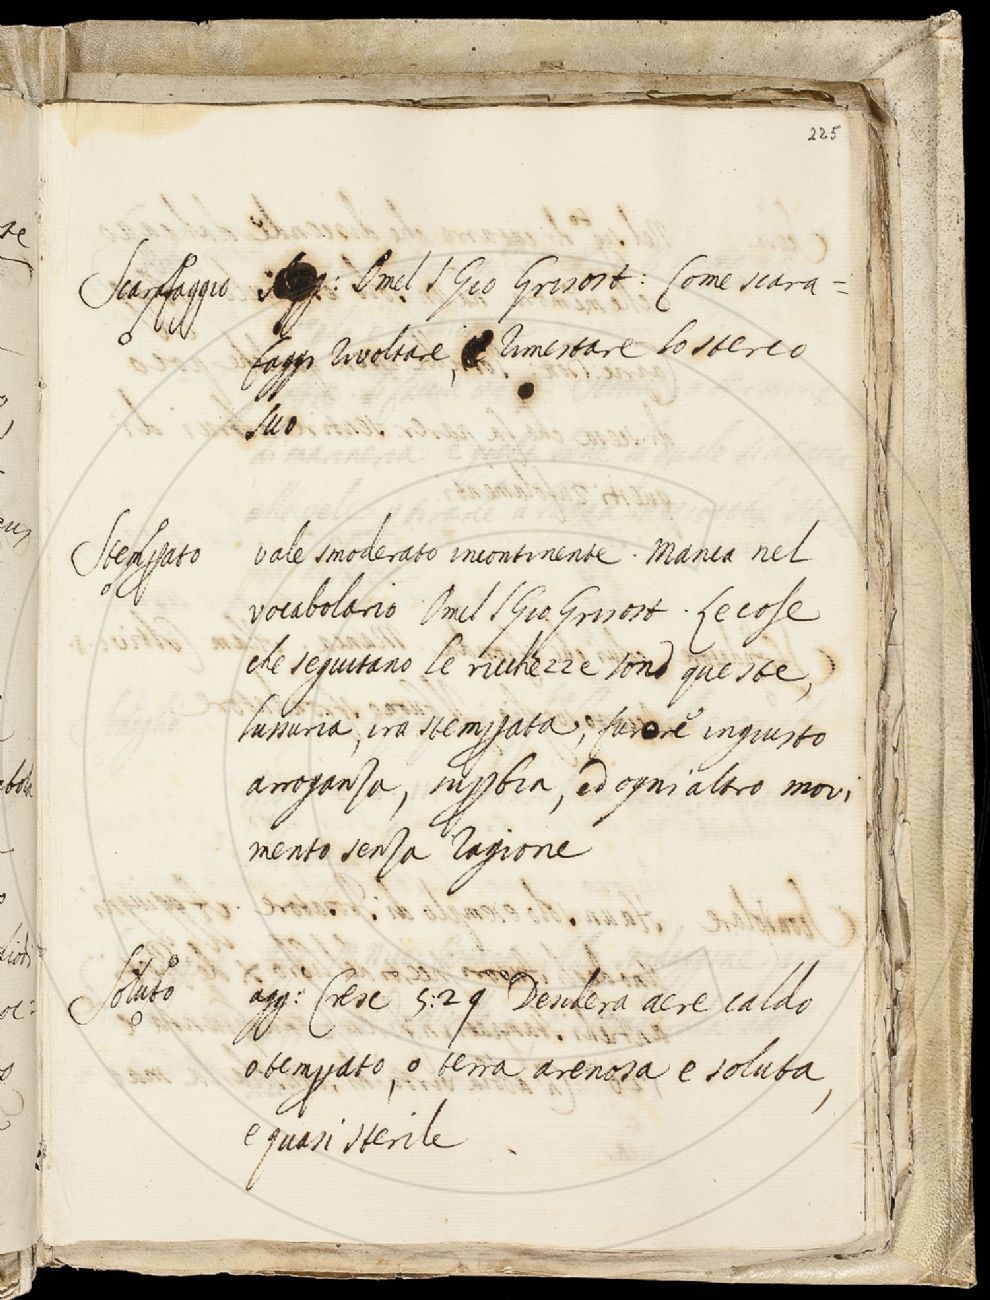 225
Scarafaggio agg: Omel S Gio Grisost: Come scara=
faggi rivoltare, e rimestare lo sterco
suo
Stemppato vale smoderato incontinente. Manca nel
vocabolario Omel S Gio Grisost. Le cose
che seguitano le ricchezze sono queste,
lussuria, ira stemppata, furore ingiusto
arroganza, suppbia, ed ogni altro movi
mento senza ragione
Soluto agg: Cresc 5:29 Desidera aere caldo
o temppato, o terra arenosa e soluta,
e quasi sterile